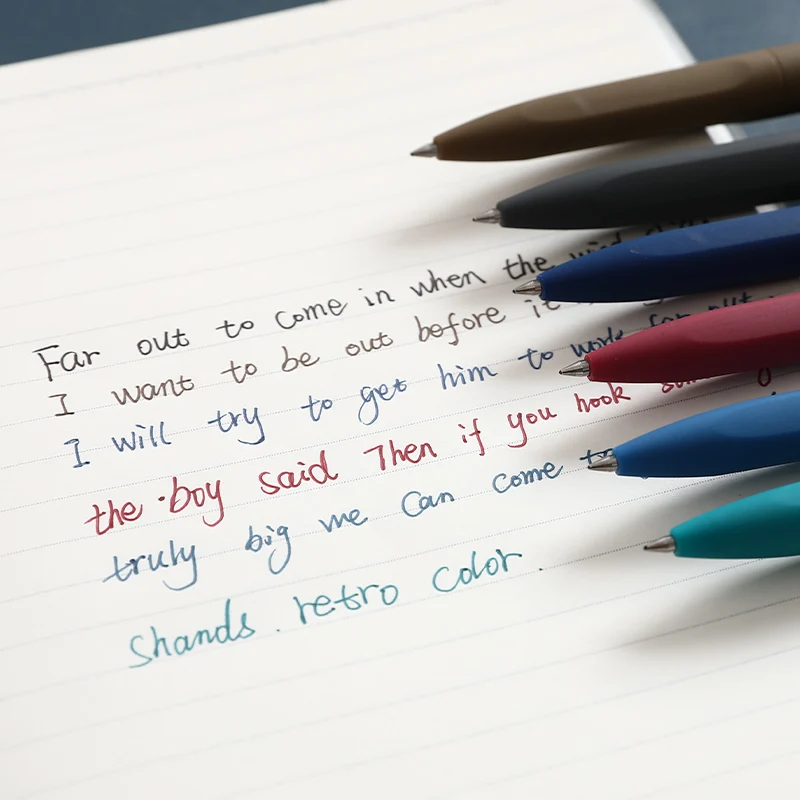 Far out to come in when the wind
I want to be out before it
I will try to get him to work far out
the boy said Then if you hook
truly big we can come to
Shands . retro color .